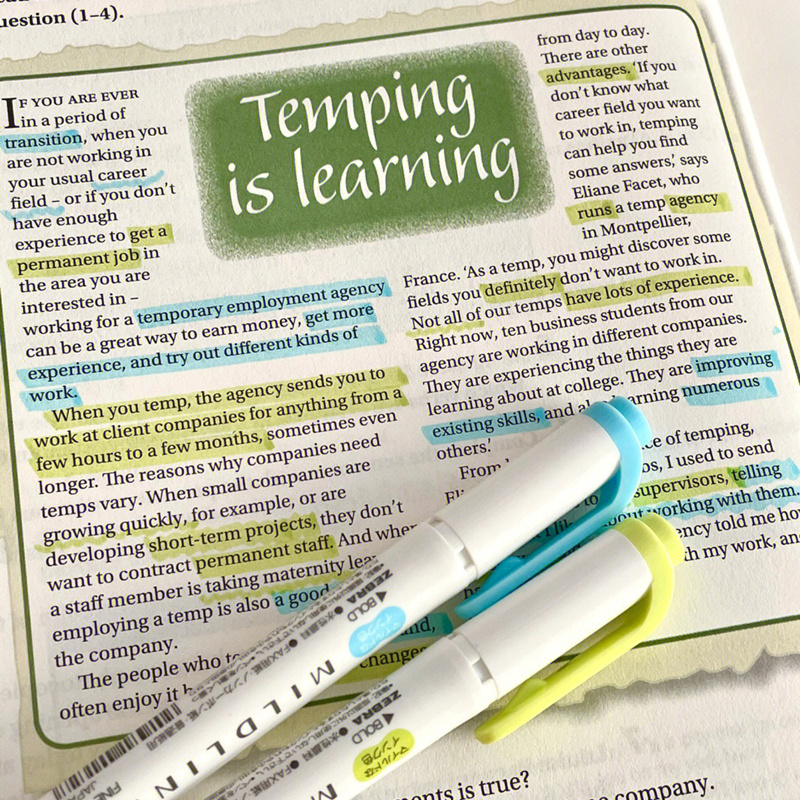 uestion (1–4).
Temping
is learning
IF YOU ARE EVER
in a period of
transition, when you
are not working in
your usual career
field – or if you don't
have enough
experience to get a
permanent job in
the area you are
interested in –
working for a temporary employment agency
can be a great way to earn money, get more
experience, and try out different kinds of
work.
When you temp, the agency sends you to
work at client companies for anything from a
few hours to a few months, sometimes even
longer. The reasons why companies need
temps vary. When small companies are
growing quickly, for example, or are
developing short-term projects, they don't
want to contract permanent staff. And when
a staff member is taking maternity
employing a temp is also a good
the company.
The people who
often enjoy it
from day to day.
There are other
advantages. 'If you
don't know what
career field you want
to work in, temping
can help you find
some answers,' says
Eliane Facet, who
runs a temp agency
in Montpellier,
France. 'As a temp, you might discover some
fields you definitely don't want to work in.
Not all of our temps have lots of experience.
Right now, ten business students from our
agency are working in different companies.
They are experiencing the things they are
learning about at college. They are improving
existing skills, and numerous
others.'
From of temping,
I used to send
supervisors, telling
about working with them.
told me how
my work, and
and,
changes
ZEBRA
BOLD
マイルドな
インク色
MILDLIN
FINE
JAPA
ZEBRA
BOLD
マイルドな
インク色
M
ents is true?
e company.